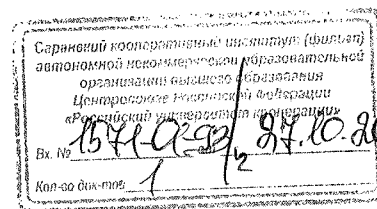 Саранский кооперативный институт (филиал)
автономной некоммерческой образовательной
организации высшего образования
Центросоюза Российской Федерации
«Российский университет кооперации»
Вх. № 27.10.20
Кол-во док-тов 1